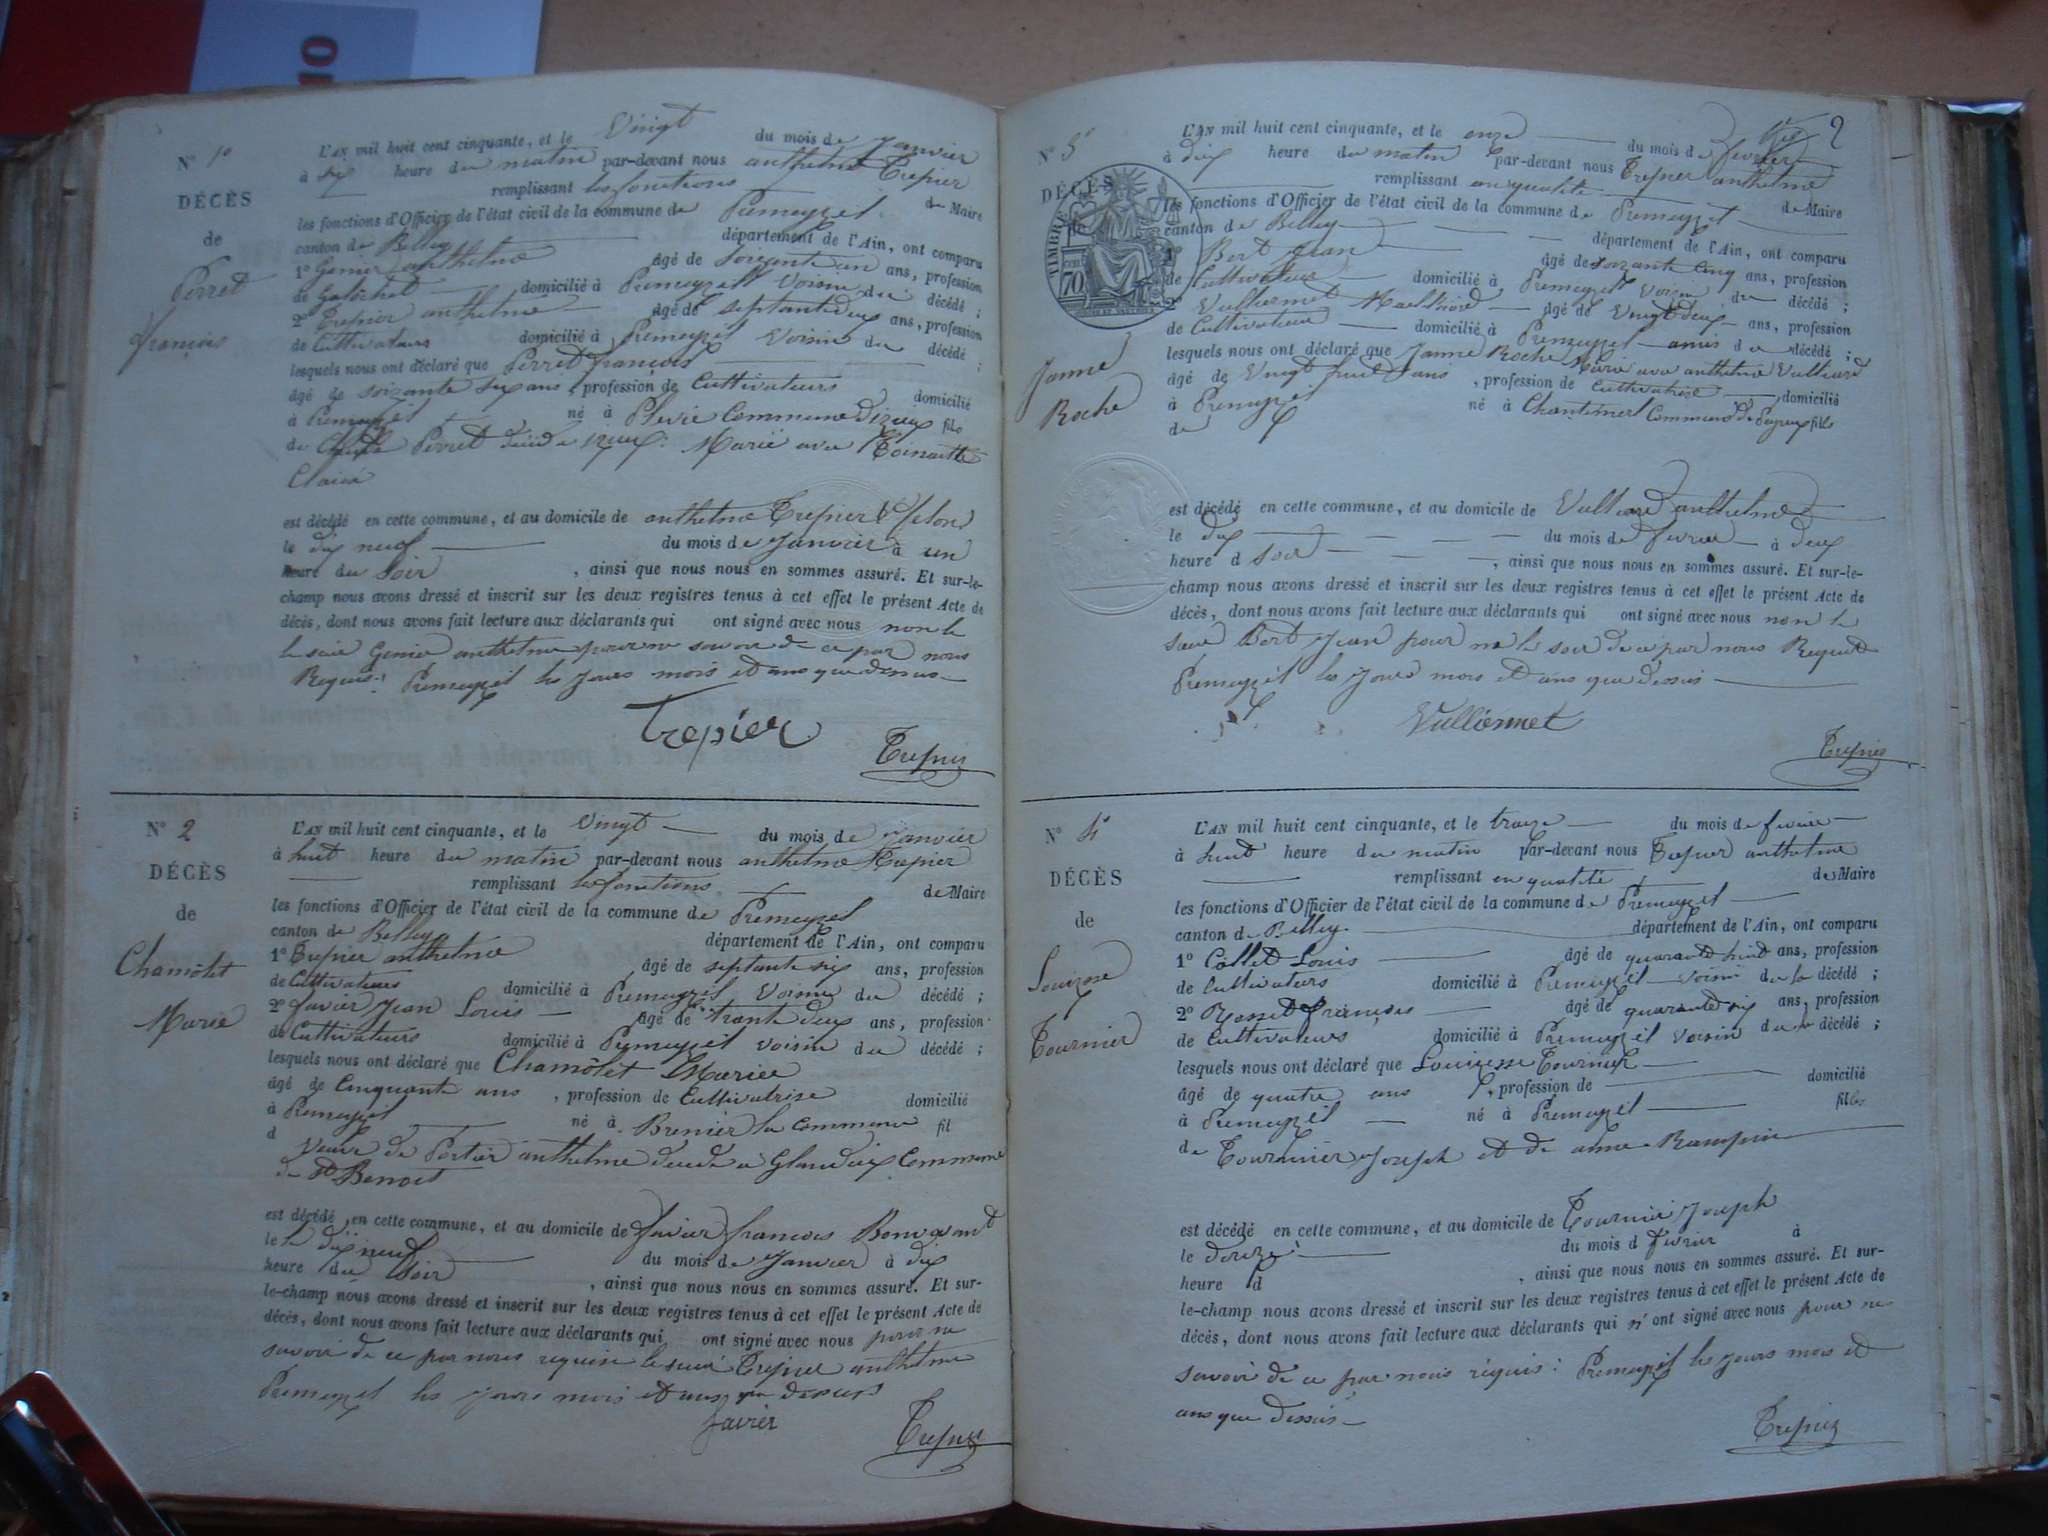 N° 1°
DÉCÈS
de
Perret
françois
L'AN mil huit cent cinquante, et le Vingt du mois de Janvier
à six heure du matin par-devant nous anthelme Trepier
remplissant les fonctions de Maire
les fonctions d'Officier de l'état civil de la commune de Premeyzel
canton de Belley département de l'Ain, ont comparu
1° Genier anthelme âgé de soixante un ans, profession
de domicilié à Premeyzell Voisin du décédé ;
2° Trepier anthelme âgé de septante deux ans, profession
de Cultivateurs domicilié à Premeyzel Voisin du décédé ;
lesquels nous ont déclaré que Perret françois
âgé de soizante six ans, profession de Cultivateurs domicilié
à Premeyzel né à Commune Dizieux fils
de Perret Marié avec
Claira
est décédé en cette commune, et au domicile de anthelme Trepier
le dix neuf du mois de Janvier à un
heure du soir, ainsi que nous nous en sommes assuré. Et sur-le-
champ nous avons dressé et inscrit sur les deux registres tenus à cet effet le présent Acte de
décès, dont nous avons fait lecture aux déclarants qui ont signé avec nous non le
le sieur Genier anthelme pour ne savoir de ce par nous
Requis: Premeyzel les jours mois et ans que dessus
Trepier
Trepier
N° 2
DÉCÈS
de
Chamôlet
Marie
L'AN mil huit cent cinquante, et le Vingt du mois de Janvier
à huit heure du matin par-devant nous anthelme Trepier
remplissant les fonctions de Maire
les fonctions d'Officier de l'état civil de la commune de Premeyzel
canton de Belley département de l'Ain, ont comparu
1° Trepier anthelme âgé de septante six ans, profession
de Cultivateurs domicilié à Premeyzel Voisin du décédé ;
2° Javier Jean Louis âgé de trante deux ans, profession
de Cultivateurs domicilié à Premeyzel voisin du décédé ;
lesquels nous ont déclaré que Chamôlet Mariee
âgé de Cinquante ans, profession de Cultivatrise domicilié
à Premeyzel né à Brenier la Commune fil
d Veuve de Portier anthelme décédé a Glandieix Commune
de St Benoit
est décédé en cette commune, et au domicile de Javier francois
le le dix neuf du mois de Janvier à dix
heure du soir, ainsi que nous nous en sommes assuré. Et sur-
le-champ nous avons dressé et inscrit sur les deux registres tenus à cet effet le présent Acte de
décès, dont nous avons fait lecture aux déclarants qui ont signé avec nous pour ne
savoir de ce par nous requise le sieur Trepier anthelme
Premeyzel les jours mois et ans que dessus
Javier
Trepier
2
N° 3
DÉCÈS
de
TIMBRE
70
Janne
Roche
L'AN mil huit cent cinquante, et le onze du mois de fevrier
à dix heure du matin par-devant nous Trepier anthelme
remplissant en qualité de Maire
les fonctions d'Officier de l'état civil de la commune de Premeyzel
canton de Belley département de l'Ain, ont comparu
1° Bert Jean âgé de soizante Cinq ans, profession
de Cultivateur domicilié à Premeyzel Voisin du décédé ;
2° Vulliermet âgé de Vingt deux ans, profession
de Cultivateur domicilié à Premeyzel amis du décédé ;
lesquels nous ont déclaré que Janne Roche Marie avec anthelme Valliard
âgé de Vingt huit ans, profession de Cultivatrise domicilié
à Premeyzel né à Chantemerl Commune de Peyrieux fils
de
est décédé en cette commune, et au domicile de anthelme
le dix du mois de fevrier à deux
heure d soir, ainsi que nous nous en sommes assuré. Et sur-le-
champ nous avons dressé et inscrit sur les deux registres tenus à cet effet le présent Acte de
décès, dont nous avons fait lecture aux déclarants qui ont signé avec nous non le
sieur Bert Jean pour ne le de ce par nous Requit
Premeyzel les Jours mois et ans que dessus
Vulliermet
Trepier
N° 4
DÉCÈS
de
Louizose
Tournier
L'AN mil huit cent cinquante, et le traize du mois de fevrier
à huit heure du matin par-devant nous Trepier anthelme
remplissant en qualité de Maire
les fonctions d'Officier de l'état civil de la commune de Premeyzel
canton de Belley. département de l'Ain, ont comparu
1° Collet Louis âgé de quarante huit ans, profession
de Cultivateurs domicilié à Premeyzel voisin de la décédé ;
2° Rosset francois âgé de quarante six ans, profession
de Cultivateurs domicilié à Premeyzel Voisin du décédé ;
lesquels nous ont déclaré que Louizesse Tournier
âgé de quatre ans, profession de domicilié
à Premeyzel né à Premeyzel filles
de Tournier Joseph et de anne
est décédé en cette commune, et au domicile de Tournier Joseph
le douze du mois d fevrier à
heure d, ainsi que nous nous en sommes assuré. Et sur-
le-champ nous avons dressé et inscrit sur les deux registres tenus à cet effet le présent Acte de
décès, dont nous avons fait lecture aux déclarants qui n'ont signé avec nous pour ne
savoir de ce par nous réquis: Premeyzel les jours mois et
ans que dessus
Trepier